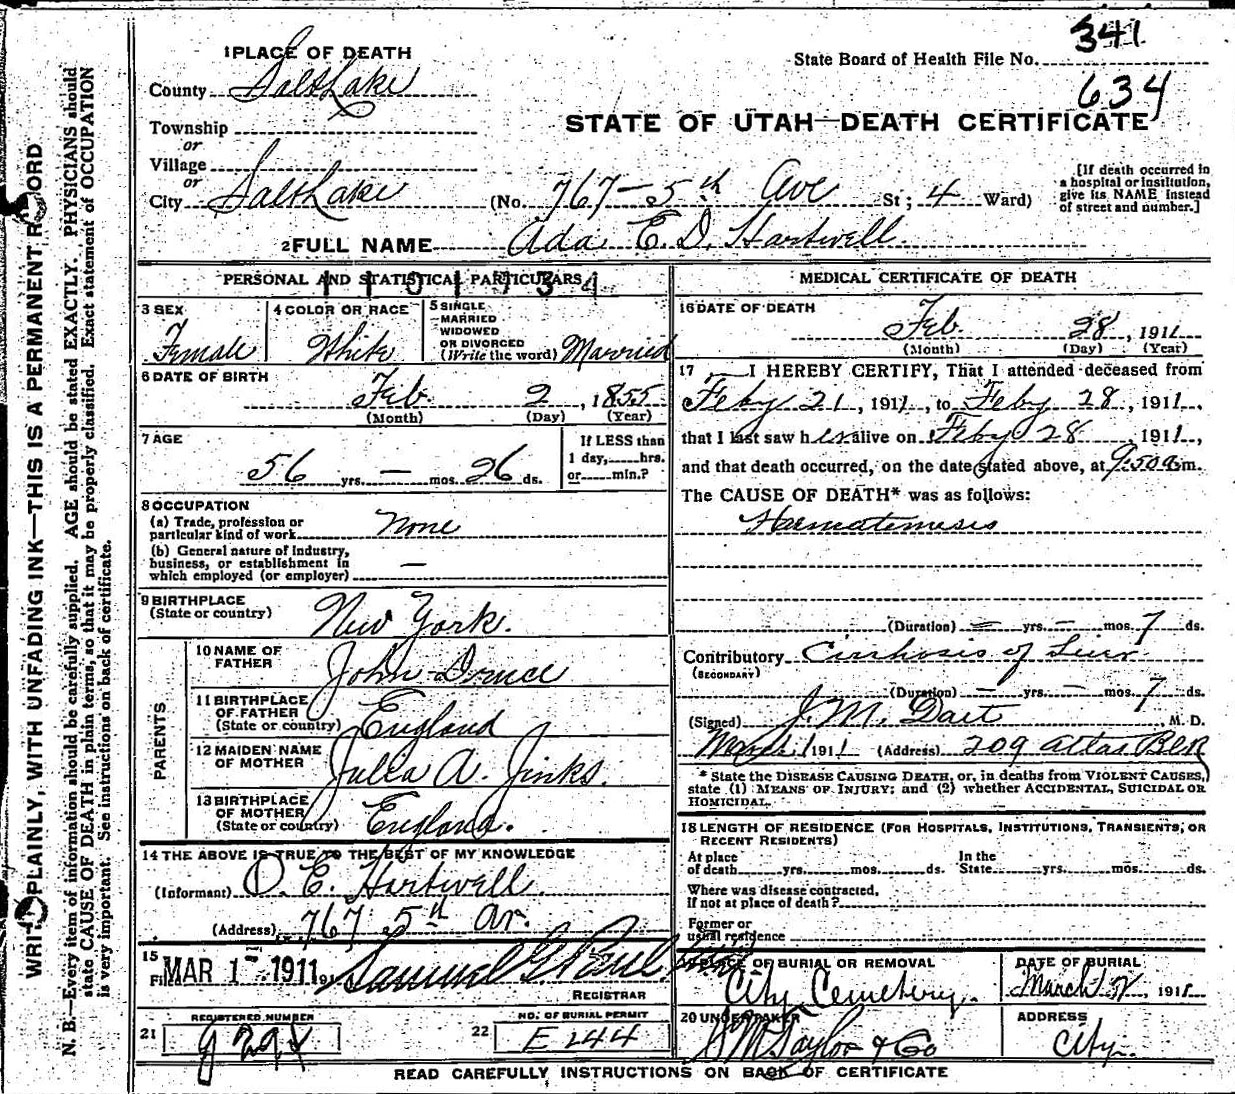 341
State Board of Health File No.
634
STATE OF UTAH—DEATH CERTIFICATE
1 PLACE OF DEATH
County Salt Lake
Township
or
Village
or
City Salt Lake (No. 767 - 5th Ave St; 4 Ward)
[If death occurred in
a hospital or institution,
give its NAME instead
of street and number.]
2 FULL NAME Ada E. D. Hartwell.
PERSONAL AND STATISTICAL PARTICULARS
3 SEX
Female
4 COLOR OR RACE
White
5 SINGLE
MARRIED
WIDOWED
OR DIVORCED
(Write the word) Married
6 DATE OF BIRTH
Feb. 2, 1855
(Month) (Day) (Year)
7 AGE
56 yrs. — mos. 26 ds.
If LESS than
1 day, hrs.
or min.?
8 OCCUPATION
(a) Trade, profession or
particular kind of work None
(b) General nature of industry,
business, or establishment in
which employed (or employer) —
9 BIRTHPLACE
(State or country) New York.
PARENTS
10 NAME OF
FATHER John Druce
11 BIRTHPLACE
OF FATHER
(State or country) England
12 MAIDEN NAME
OF MOTHER Julia A. Jinks.
13 BIRTHPLACE
OF MOTHER
(State or country) England.
14 THE ABOVE IS TRUE TO THE BEST OF MY KNOWLEDGE
(Informant) O. E. Hartwell
(Address) 767 5th Av.
15
Filed MAR 1 1911 191
Samuel G. Paul
REGISTRAR
21 REGISTERED NUMBER
22 NO. OF BURIAL PERMIT
E 244
MEDICAL CERTIFICATE OF DEATH
16 DATE OF DEATH
Feb. 28, 1911
(Month) (Day) (Year)
17 I HEREBY CERTIFY, That I attended deceased from
Feby 21, 1911, to Feby 28, 1911,
that I last saw her alive on Feby 28, 1911,
and that death occurred, on the date stated above, at 9:50 a m.
The CAUSE OF DEATH* was as follows:
Haematemesis
(Duration) — yrs. — mos. 7 ds.
Contributory Cirrhosis of Liver
(SECONDARY)
(Duration) — yrs. — mos. 7 ds.
(Signed) J. M. Dart M. D.
March 1 1911 (Address) 209 Atlas Blk
* State the DISEASE CAUSING DEATH, or, in deaths from VIOLENT CAUSES,
state (1) MEANS OF INJURY; and (2) whether ACCIDENTAL, SUICIDAL OR
HOMICIDAL.
18 LENGTH OF RESIDENCE (FOR HOSPITALS, INSTITUTIONS, TRANSIENTS, OR
RECENT RESIDENTS)
At place
of death yrs. mos. ds.
In the
State yrs. mos. ds.
Where was disease contracted,
If not at place of death?
Former or
usual residence
19 PLACE OF BURIAL OR REMOVAL
City Cemetery.
DATE OF BURIAL
March 2 1911
20 UNDERTAKER
S. M. Taylor & Co
ADDRESS
City.
READ CAREFULLY INSTRUCTIONS ON BACK OF CERTIFICATE
WRITE PLAINLY, WITH UNFADING INK—THIS IS A PERMANENT RECORD
N. B.—Every item of information should be carefully supplied. AGE should be stated EXACTLY. PHYSICIANS should
state CAUSE OF DEATH in plain terms, so that it may be properly classified. Exact statement of OCCUPATION
is very important. See instructions on back of certificate.